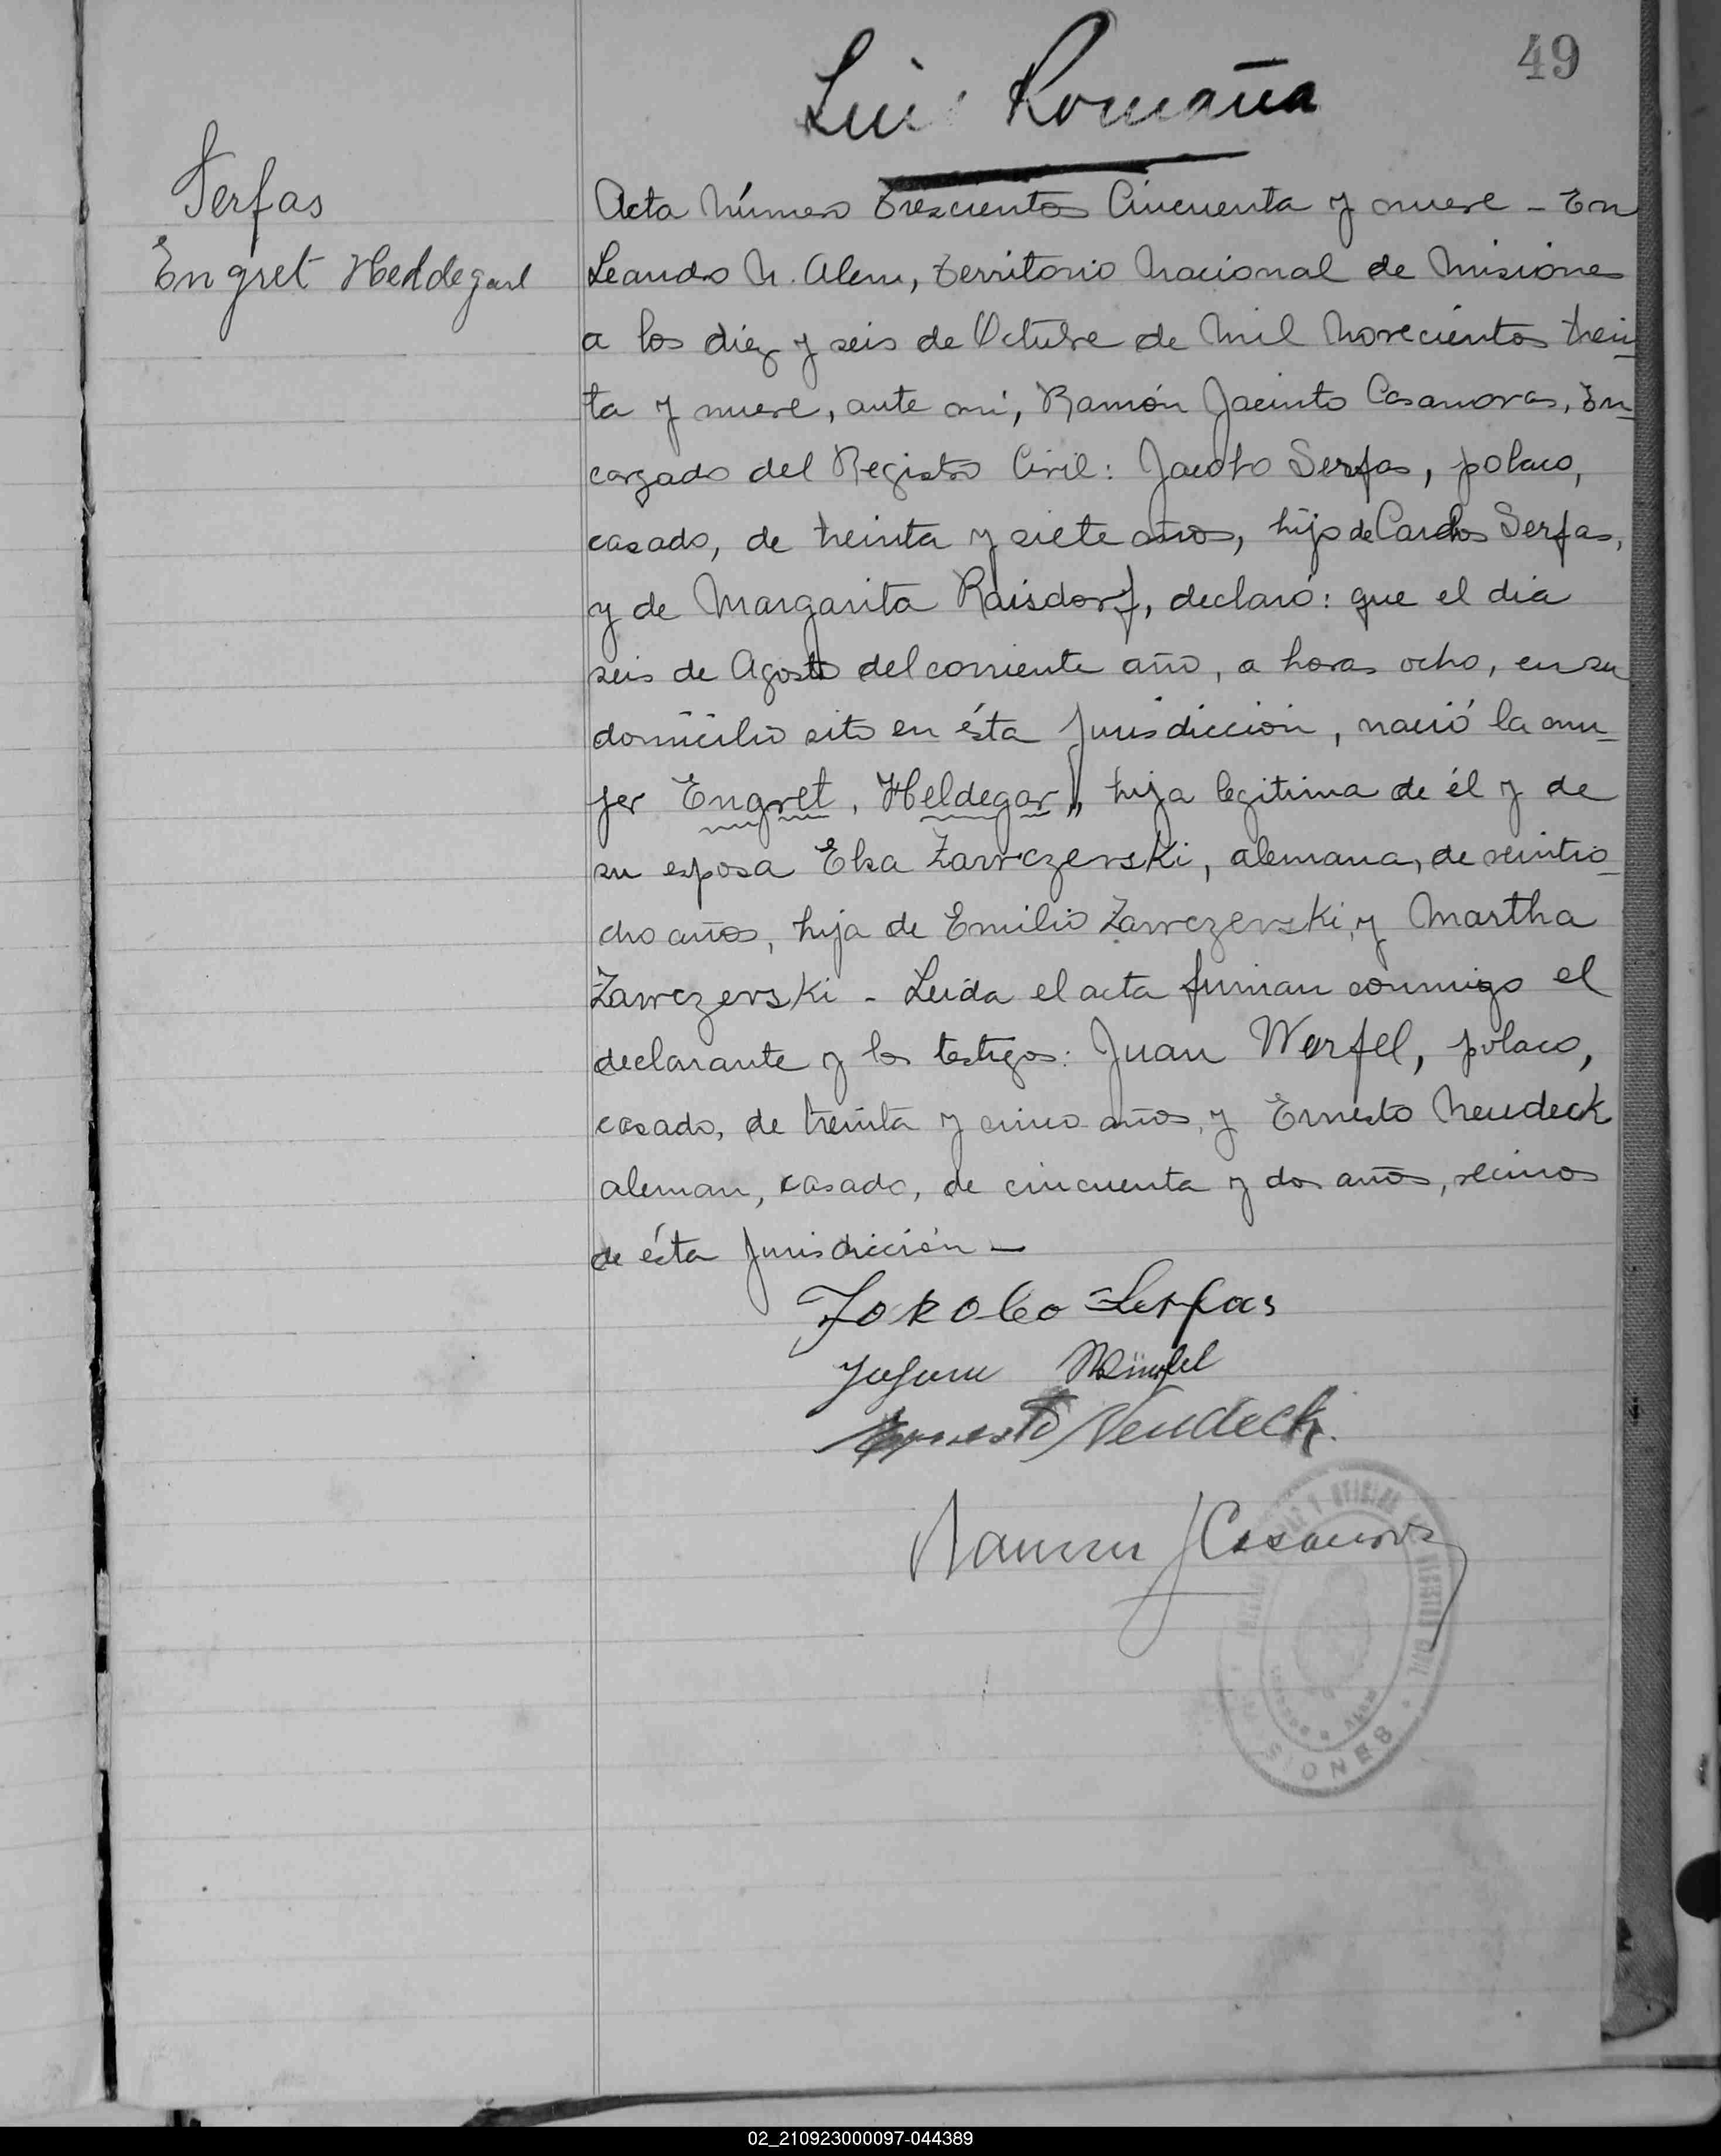 49
Luis Romaña
Serfas
Engret Heldegard
Acta Número Trescientos Cincuenta y nueve - En
Leandro N. Alem, Territorio Nacional de Misiones
a los diez y seis de Octubre de Mil Novecientos trein
ta y nueve, ante mi, Ramón Jacinto Casanovas, En
cargado del Registro Civil: Jacobo Serfas, polaco,
casado, de treinta y siete años, hijo de Carlos Serfas,
y de Margarita Raisdorf, declaró: que el dia
seis de Agosto del corriente año, a horas ocho, en su
domicilio sito en ésta Jurisdicción, nació la mu-
jer Engret, Heldegar„ hija legitima de él y de
su esposa Elsa Zawczerski, alemana, de veintio-
cho años, hija de Emilio Zawczerski, y Martha
Zawczerski - Leida el acta firman conmigo el
declarante y los testigos: Juan Werfel, polaco,
casado, de treinta y cinco años, y Ernesto Neudeck
aleman, casado, de cincuenta y dos años, vecinos
de ésta Jurisdicción -
Jokobo Serfas
Ernesto Neudeck.
Ramon J Casanovas
REGISTRO CIVIL
MISIONES
02_210923000097-044389